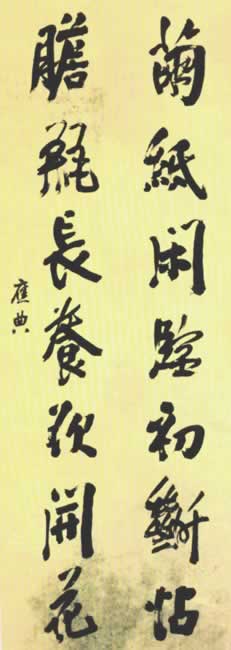 繭紙閑臨初斷帖
膽瓶長養欲開花
應典